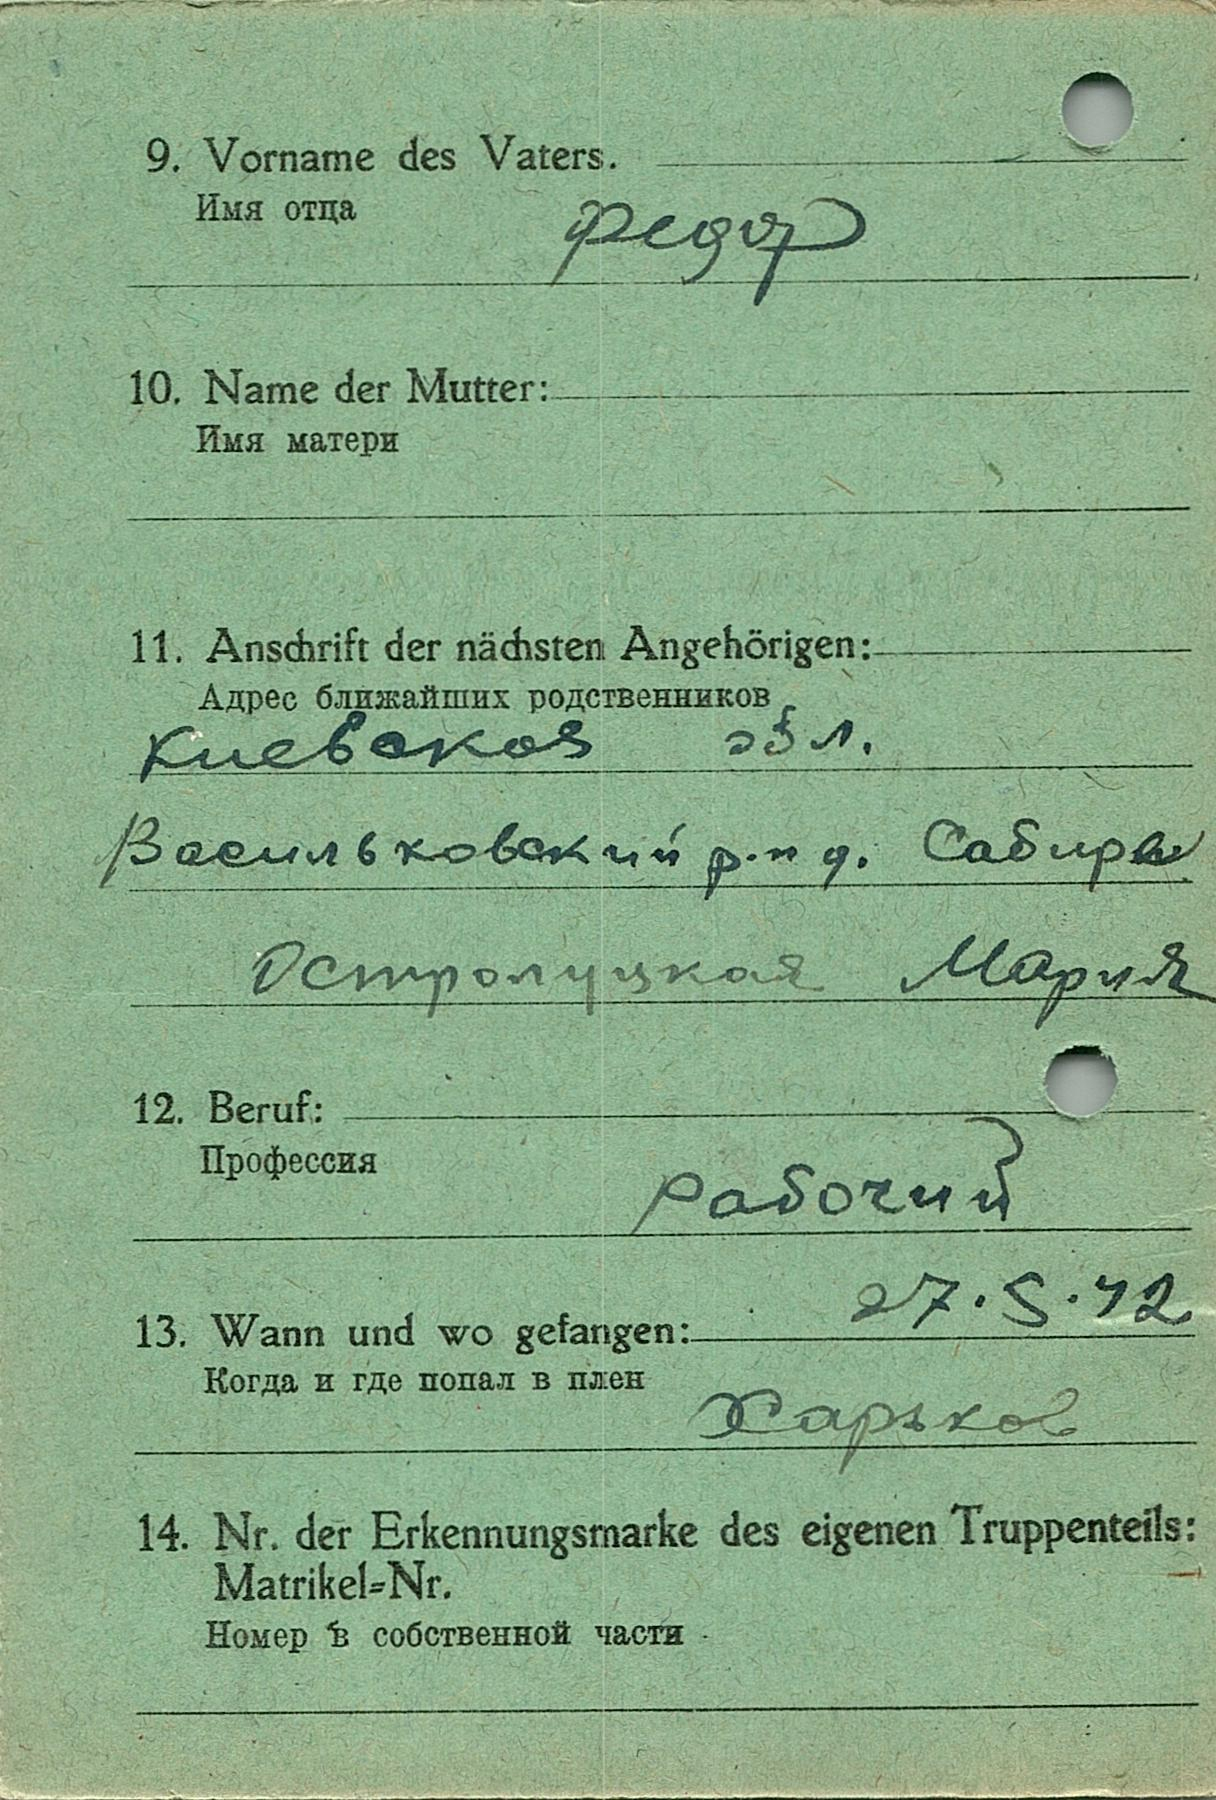 9. Vorname des Vaters.
Имя отца
Федор
10. Name der Mutter:
Имя матери
11. Anschrift der nächsten Angehörigen:
Адрес ближайших родственников
Киевская обл.
Васильковский р-н д.
Остролуцкая Мария
12. Beruf:
Профессия
рабочий
27.5.42
13. Wann und wo gefangen:
Когда и где попал в плен
Харьков
14. Nr. der Erkennungsmarke des eigenen Truppenteils:
Matrikel=Nr.
Номер в собственной части